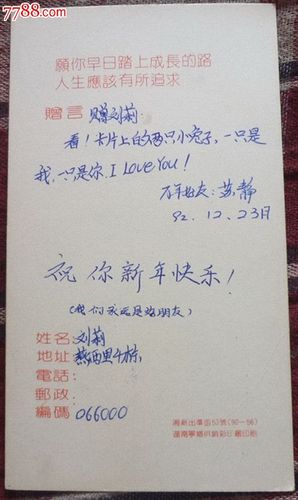 7788.com
愿你早日踏上成長的路
人生應該有所追求
贈言 赠刘莉:
看!卡片上的两只小兔子,一只是
我,一只是你.I Love You!
好友:苏静
92.12.23日
祝你新年快乐!
(我们永远是好朋友)
姓名:刘莉
地址:
電話:
郵政:
編碼:066000
湘新出準字53號(90-56)